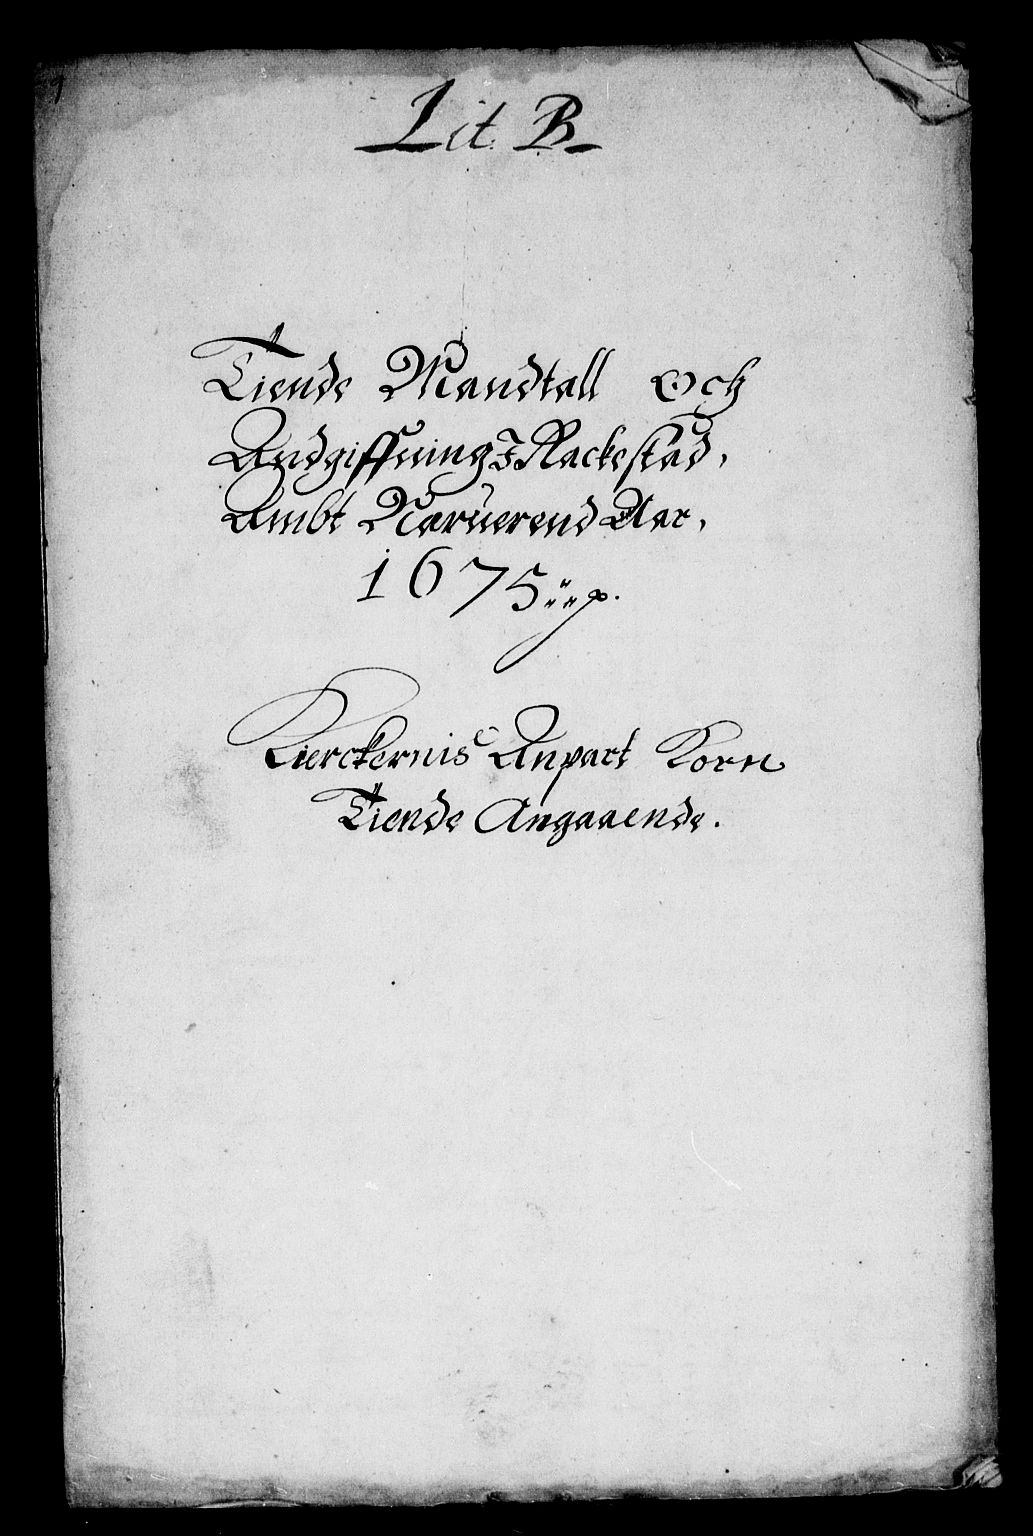 Lit. B
Tiende Mandtall och
Andgiffning I Rackestad,
Ambt Naruerend Aar,
1675
Kierckernis Anpart Korn
Tiende Angaaende.